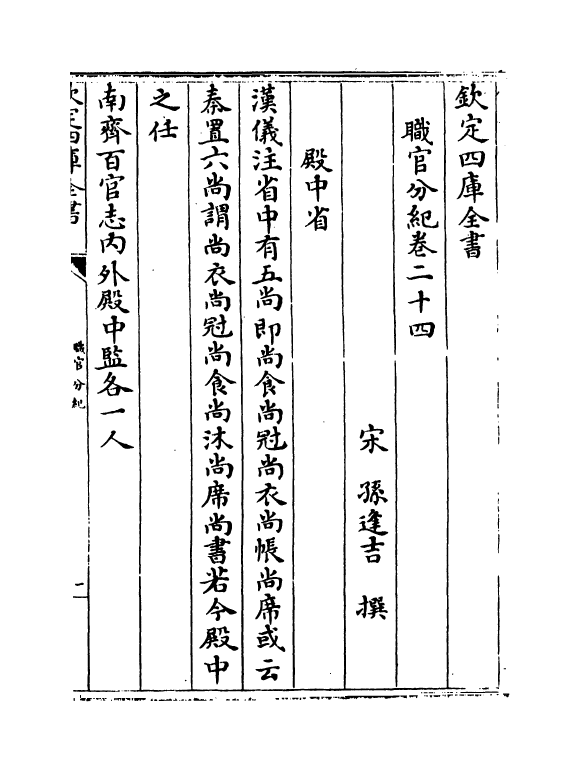 欽定四庫全書
職官分紀卷二十四
宋 孫逢吉 撰
殿中省
漢儀注省中有五尚即尚食尚冠尚衣尚帳尚席或云
秦置六尚謂尚衣尚冠尚食尚沐尚席尚書若今殿中
之任
南齊百官志内外殿中監各一人
欽定四庫全書
職官分紀
一